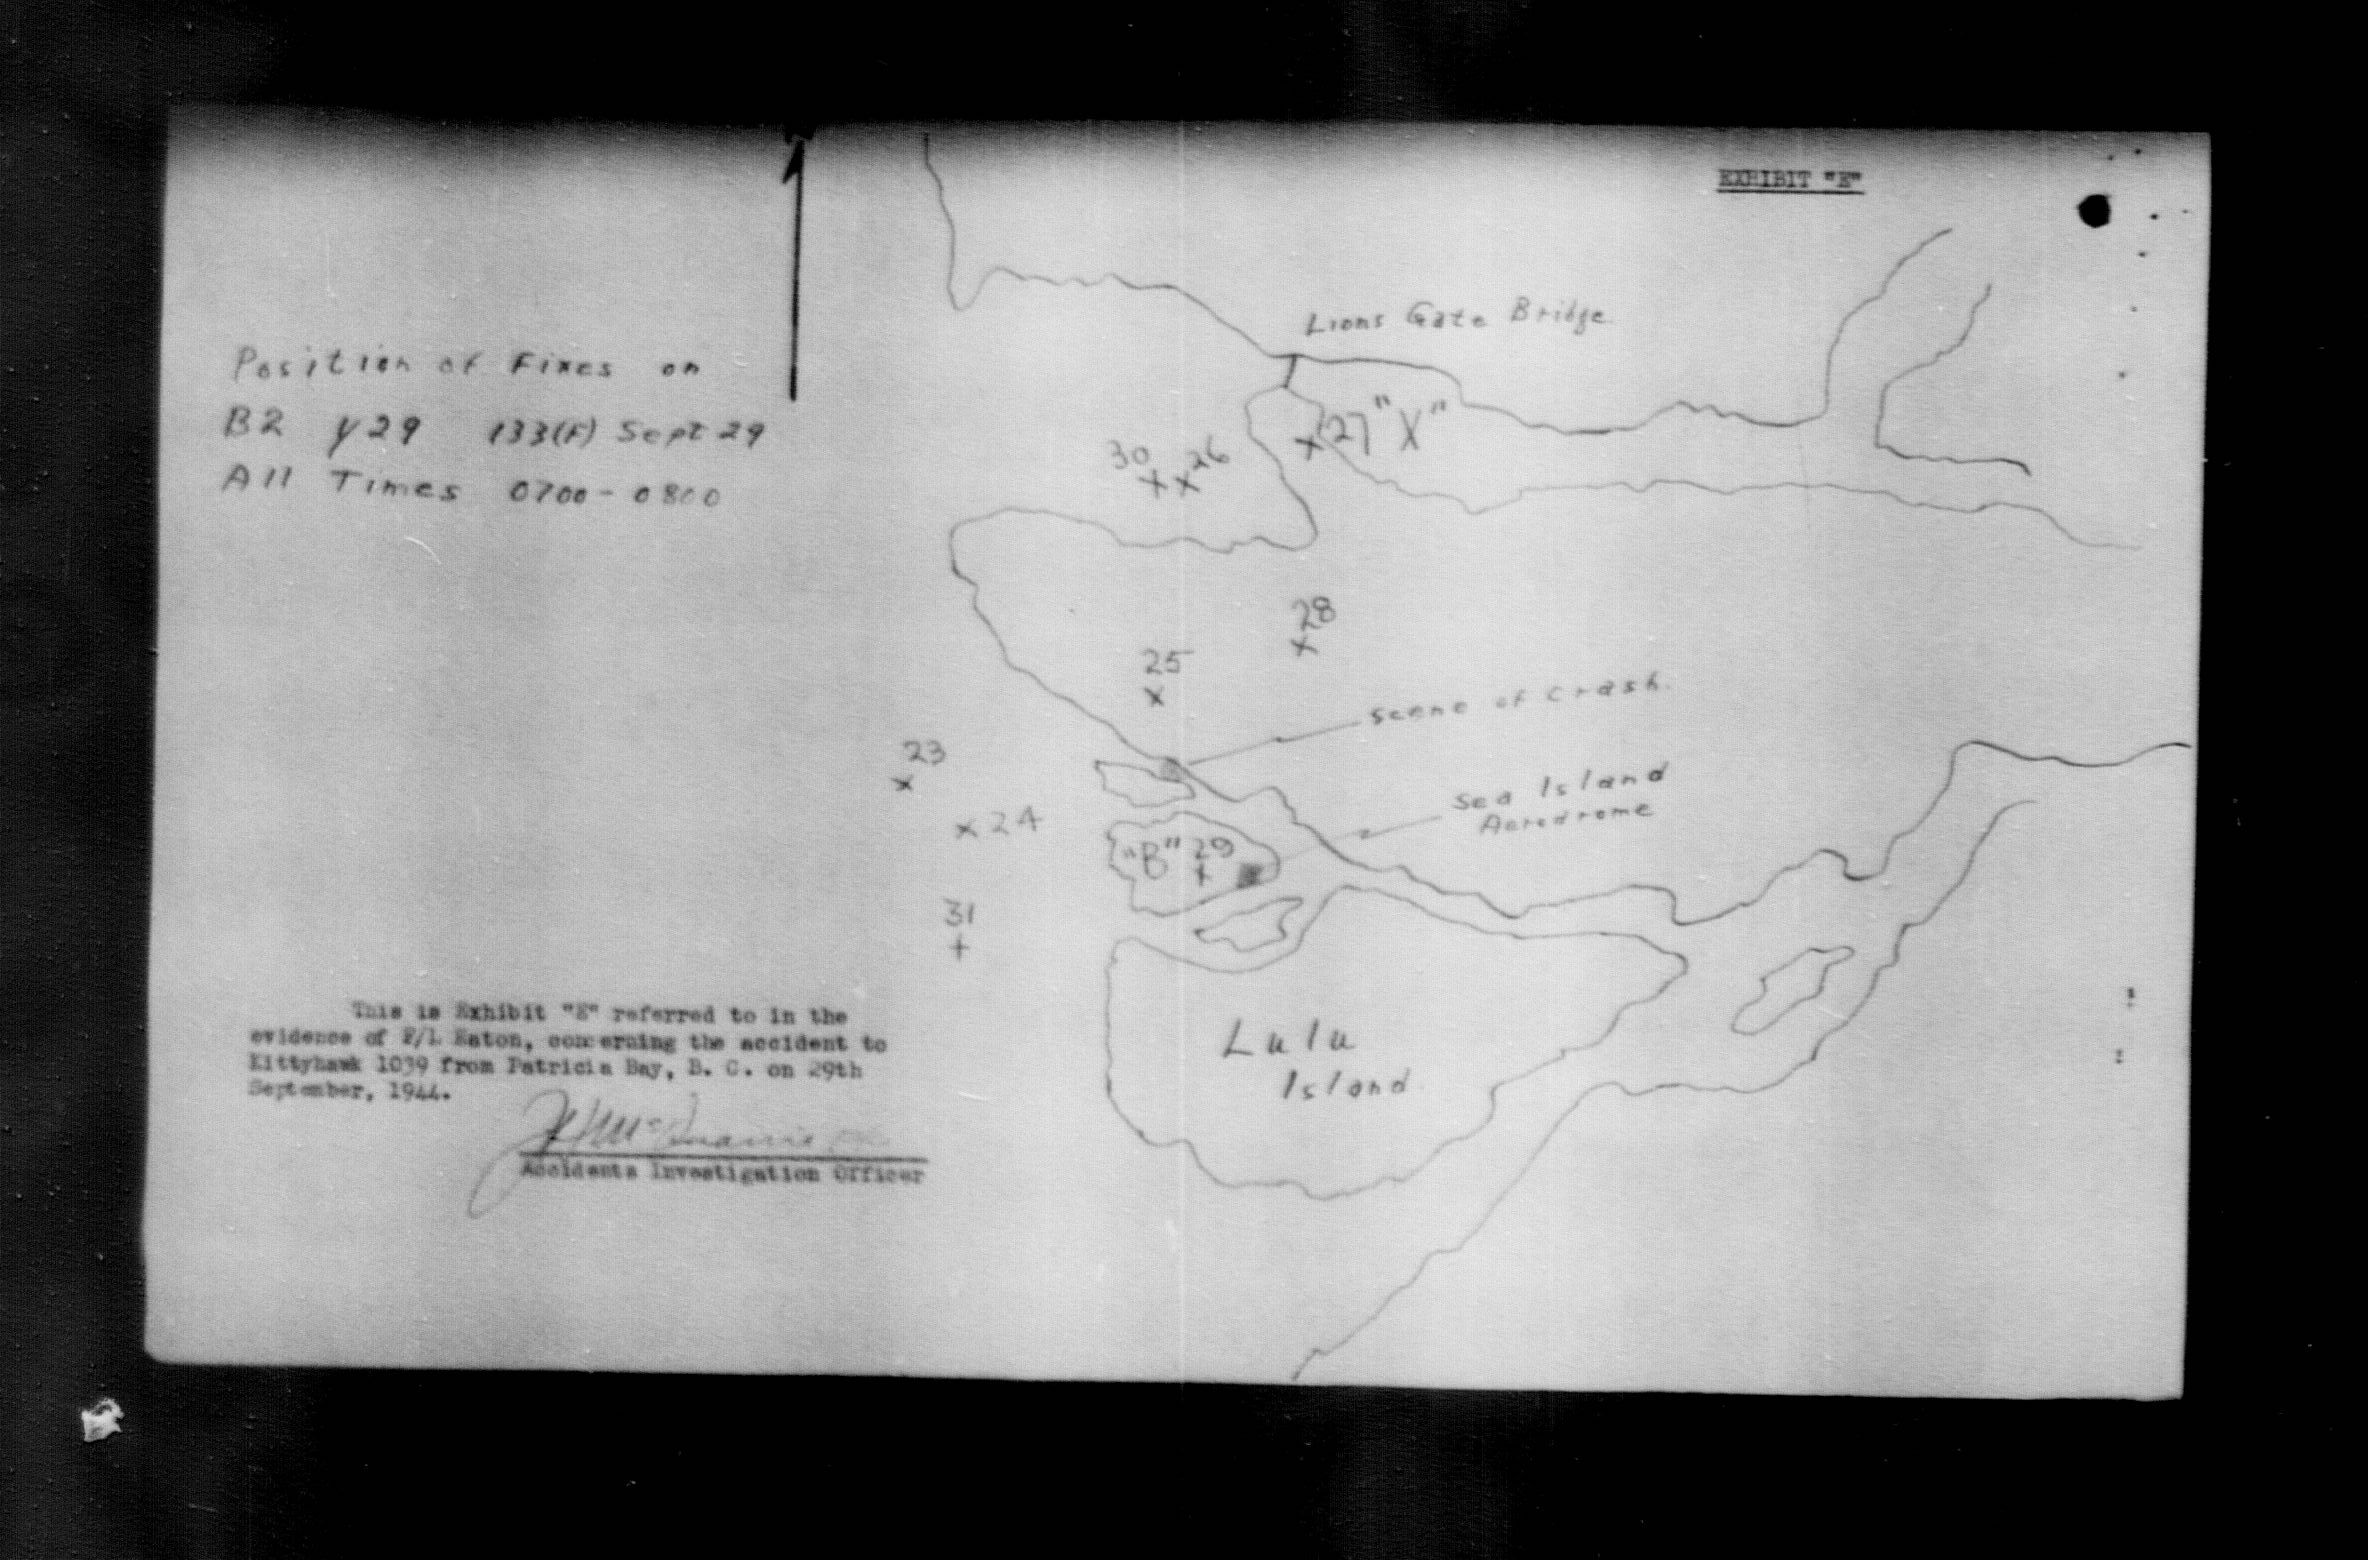 EXHIBIT "E"
Lions Gate Bridge.
Position of Fixes on
B2 Y29 133(F) Sept 29
All Times 0700-0800
27 "X"
30
26
28
25
Scene of Crash.
23
Sea Island
Aerodrome
24
"B" 29
31
Lulu
Island
This is Exhibit "E" referred to in the
evidence of F/L Eaton, concerning the accident to
Kittyhawk 1039 from Patricia Bay, B. C. on 29th
September, 1944.
Accidents Investigation Officer